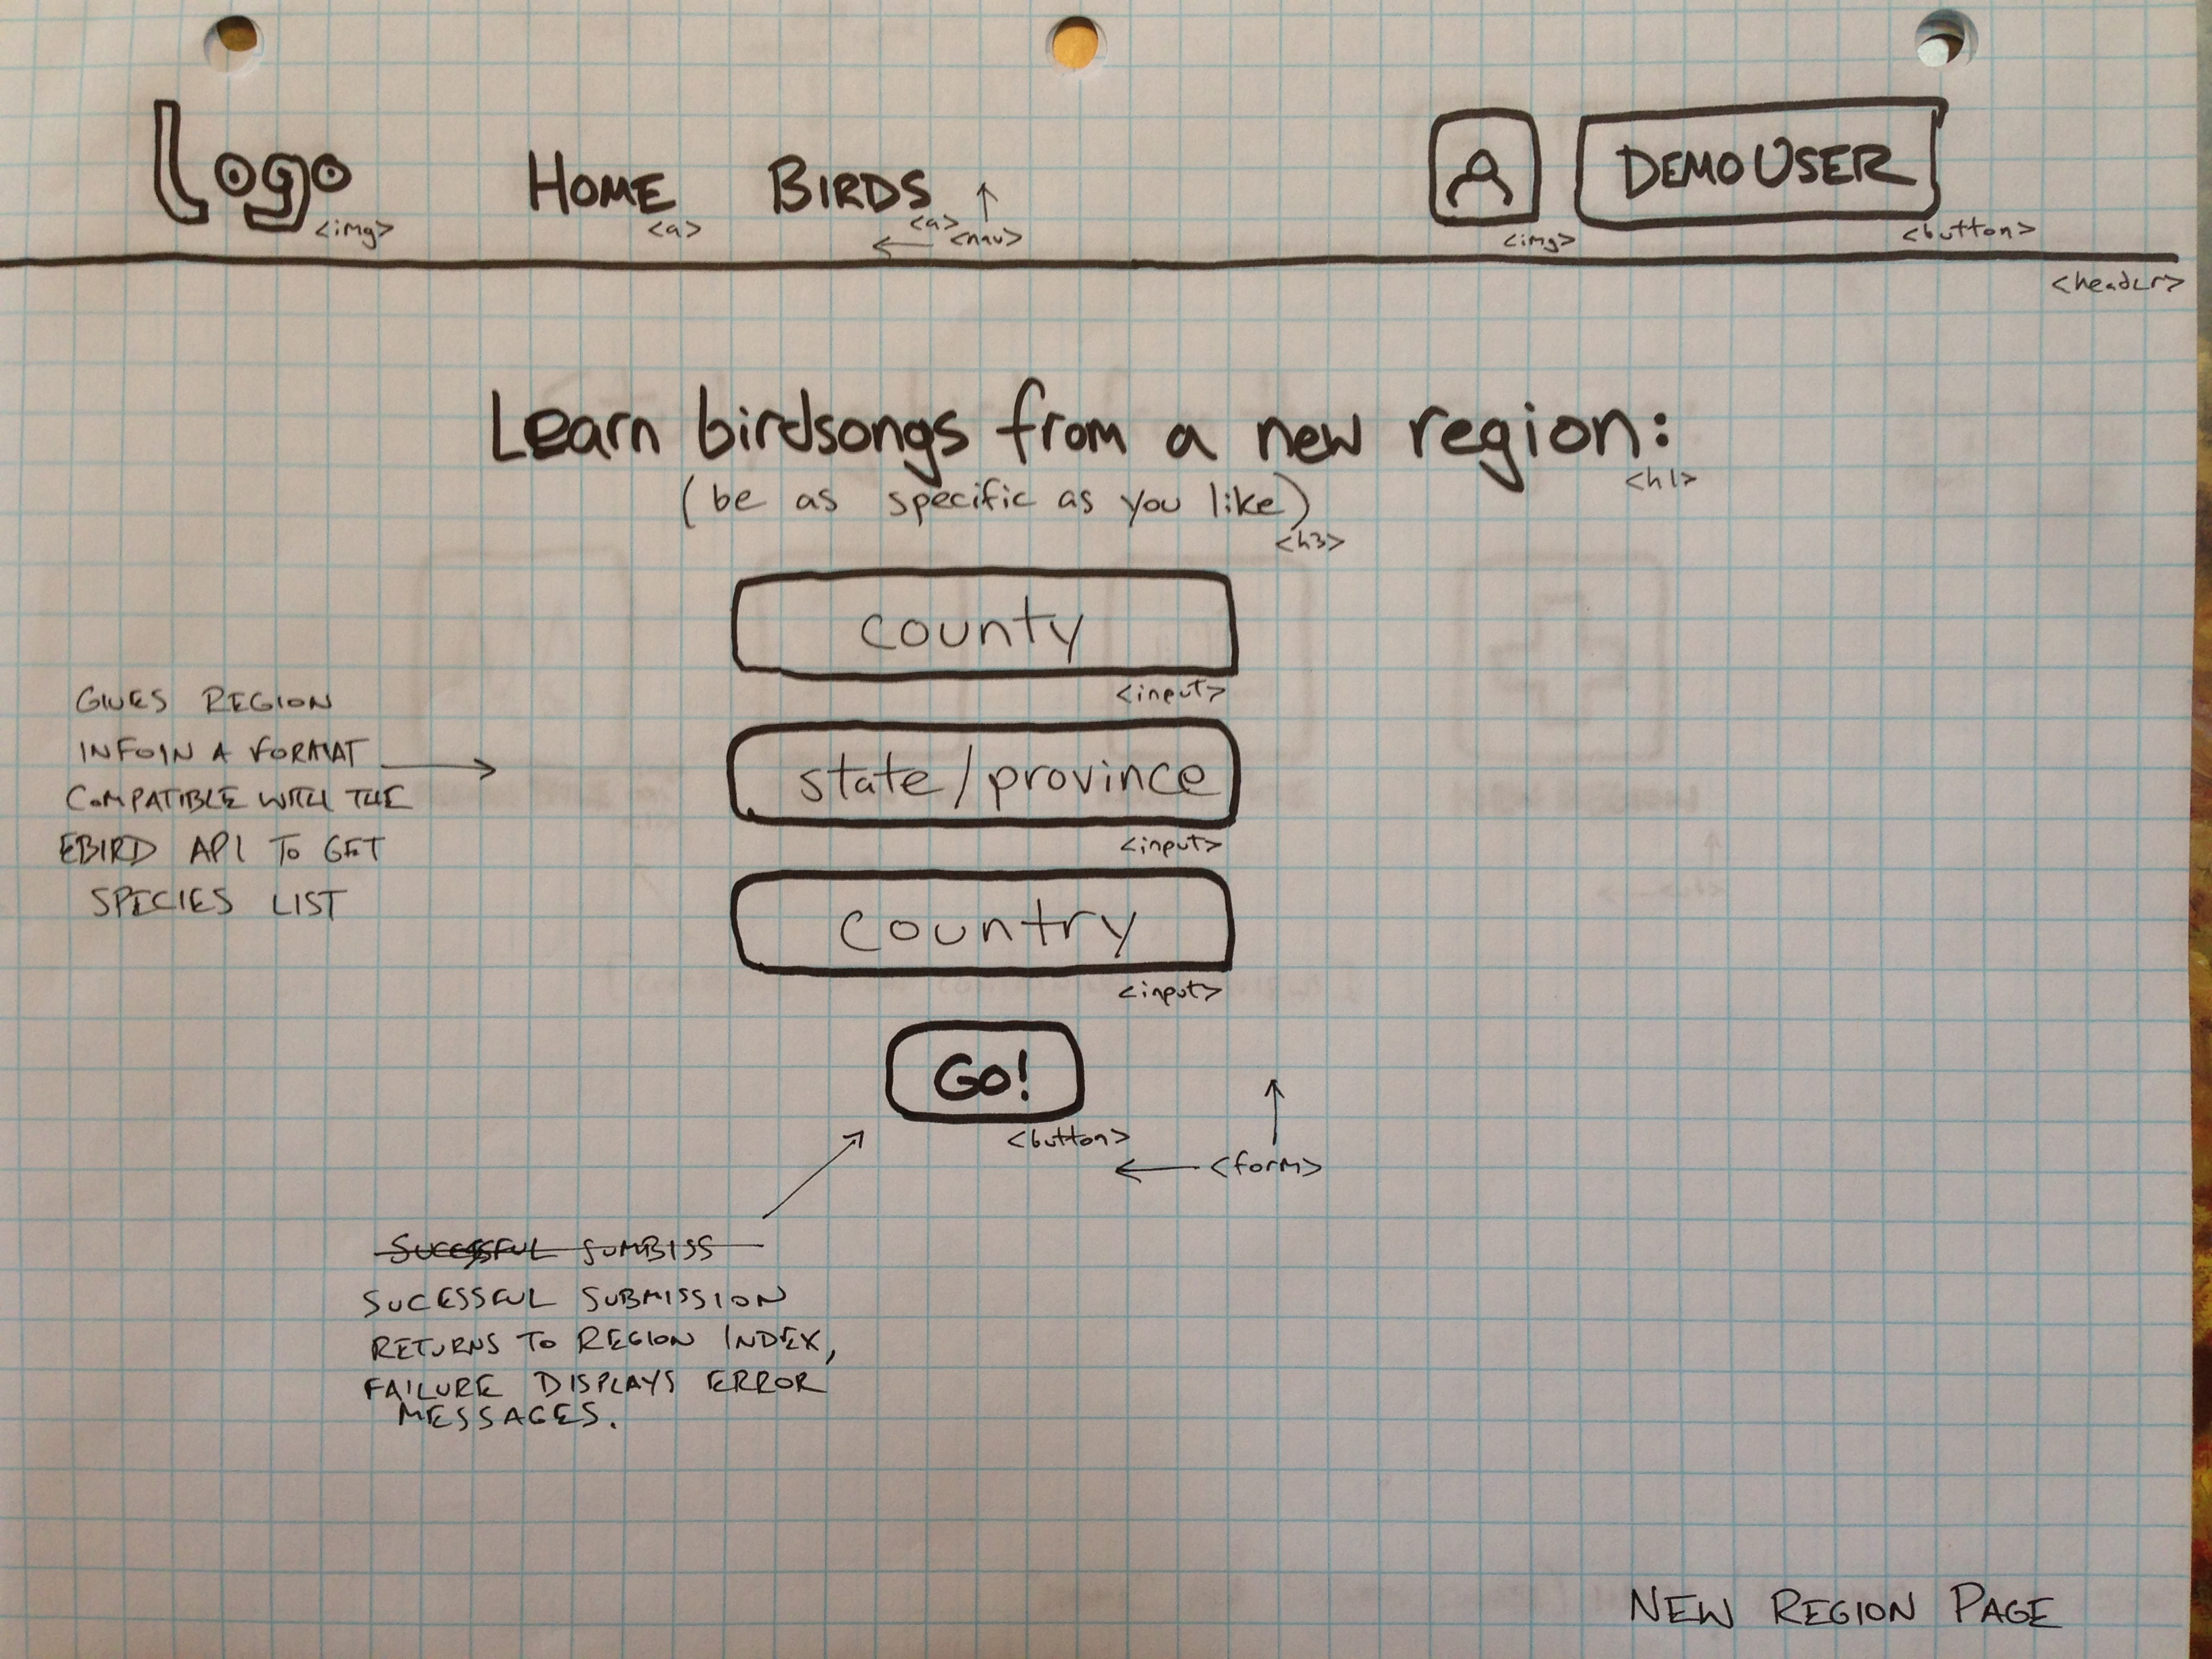 Logo HOME BIRDS DEMO USER
<img> <a> <a> <nav> <img> <button>
<header>
Learn birdsongs from a new region:
<h1>
(be as specific as you like)
<h3>
county
<input>
state/province
<input>
country
<input>
GO!
<button>
<form>
GIVES REGION
INFO IN A FORMAT
COMPATIBLE WITH THE
EBIRD API TO GET
SPECIES LIST
SUCESSFUL SUMBISS
SUCESSFUL SUBMISSION
RETURNS TO REGION INDEX,
FAILURE DISPLAYS ERROR
MESSAGES.
NEW REGION PAGE